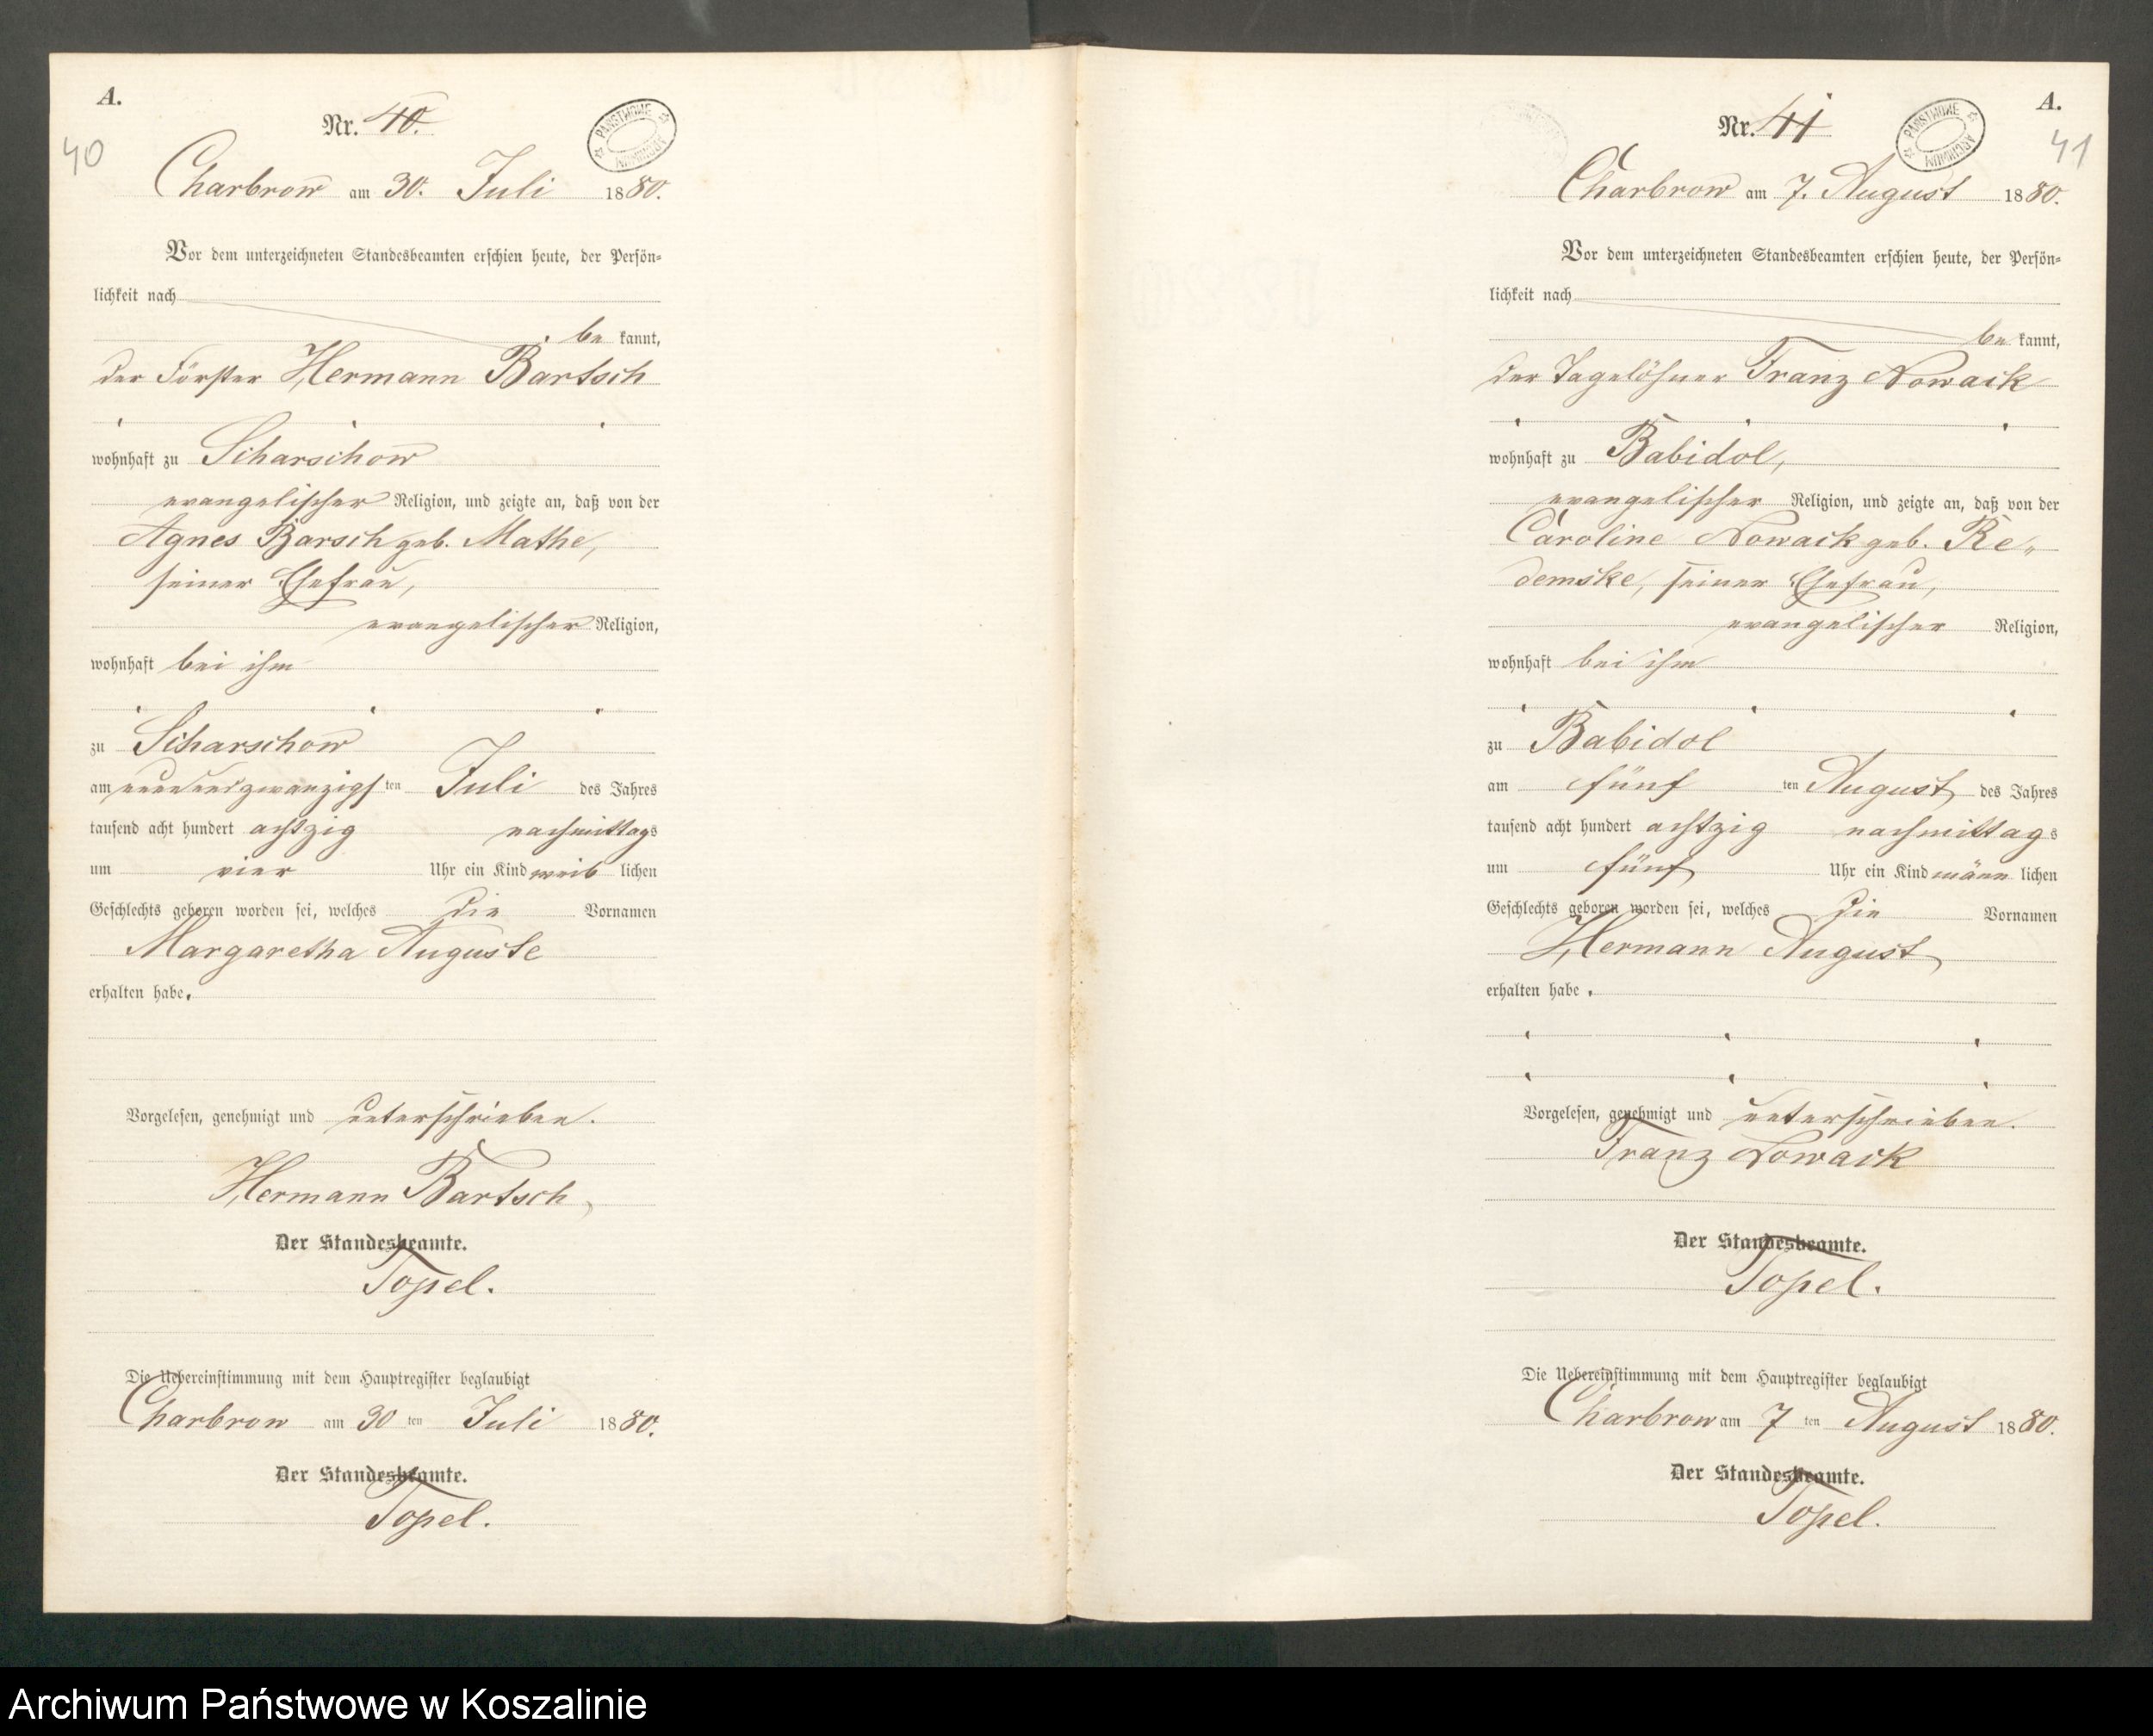 A.
40
Nr. 40.
PAŃSTWOWE ARCHIWUM
Charbrow am 30. Juli 1880.
Vor dem unterzeichneten Standesbeamten erschien heute, der Persön-
lichkeit nach
be kannt,
der Förster Hermann Bartsch
wohnhaft zu Scharschow
evangelischer Religion, und zeigte an, daß von der
Agnes Barsch geb. Mathe,
seiner Ehefrau,
evangelischer Religion,
wohnhaft bei ihm
zu Scharschow
am neunundzwanzigsten Juli des Jahres
tausend acht hundert achtzig nachmittags
um vier Uhr ein Kind weiblichen
Geschlechts geboren worden sei, welches die Vornamen
Margaretha Auguste
erhalten habe.
Vorgelesen, genehmigt und unterschrieben.
Hermann Bartsch,
Der Standesbeamte.
Topel.
Die Uebereinstimmung mit dem Hauptregister beglaubigt
Charbrow am 30 ten Juli 1880.
Der Standesbeamte.
Topel.
A.
41
Nr. 41
PAŃSTWOWE ARCHIWUM
Charbrow am 7. August 1880.
Vor dem unterzeichneten Standesbeamten erschien heute, der Persön-
lichkeit nach
be kannt,
der Tagelöhner Franz Nowack
wohnhaft zu Babidol,
evangelischer Religion, und zeigte an, daß von der
Caroline Nowack geb. Re-
demske, seiner Ehefrau,
evangelischer Religion,
wohnhaft bei ihm
zu Babidol
am fünf ten August des Jahres
tausend acht hundert achtzig nachmittags
um fünf Uhr ein Kind männlichen
Geschlechts geboren worden sei, welches die Vornamen
Hermann August
erhalten habe.
Vorgelesen, genehmigt und unterschrieben.
Franz Nowack
Der Standesbeamte.
Topel.
Die Uebereinstimmung mit dem Hauptregister beglaubigt
Charbrow am 7 ten August 1880.
Der Standesbeamte.
Topel.
Archiwum Państwowe w Koszalinie